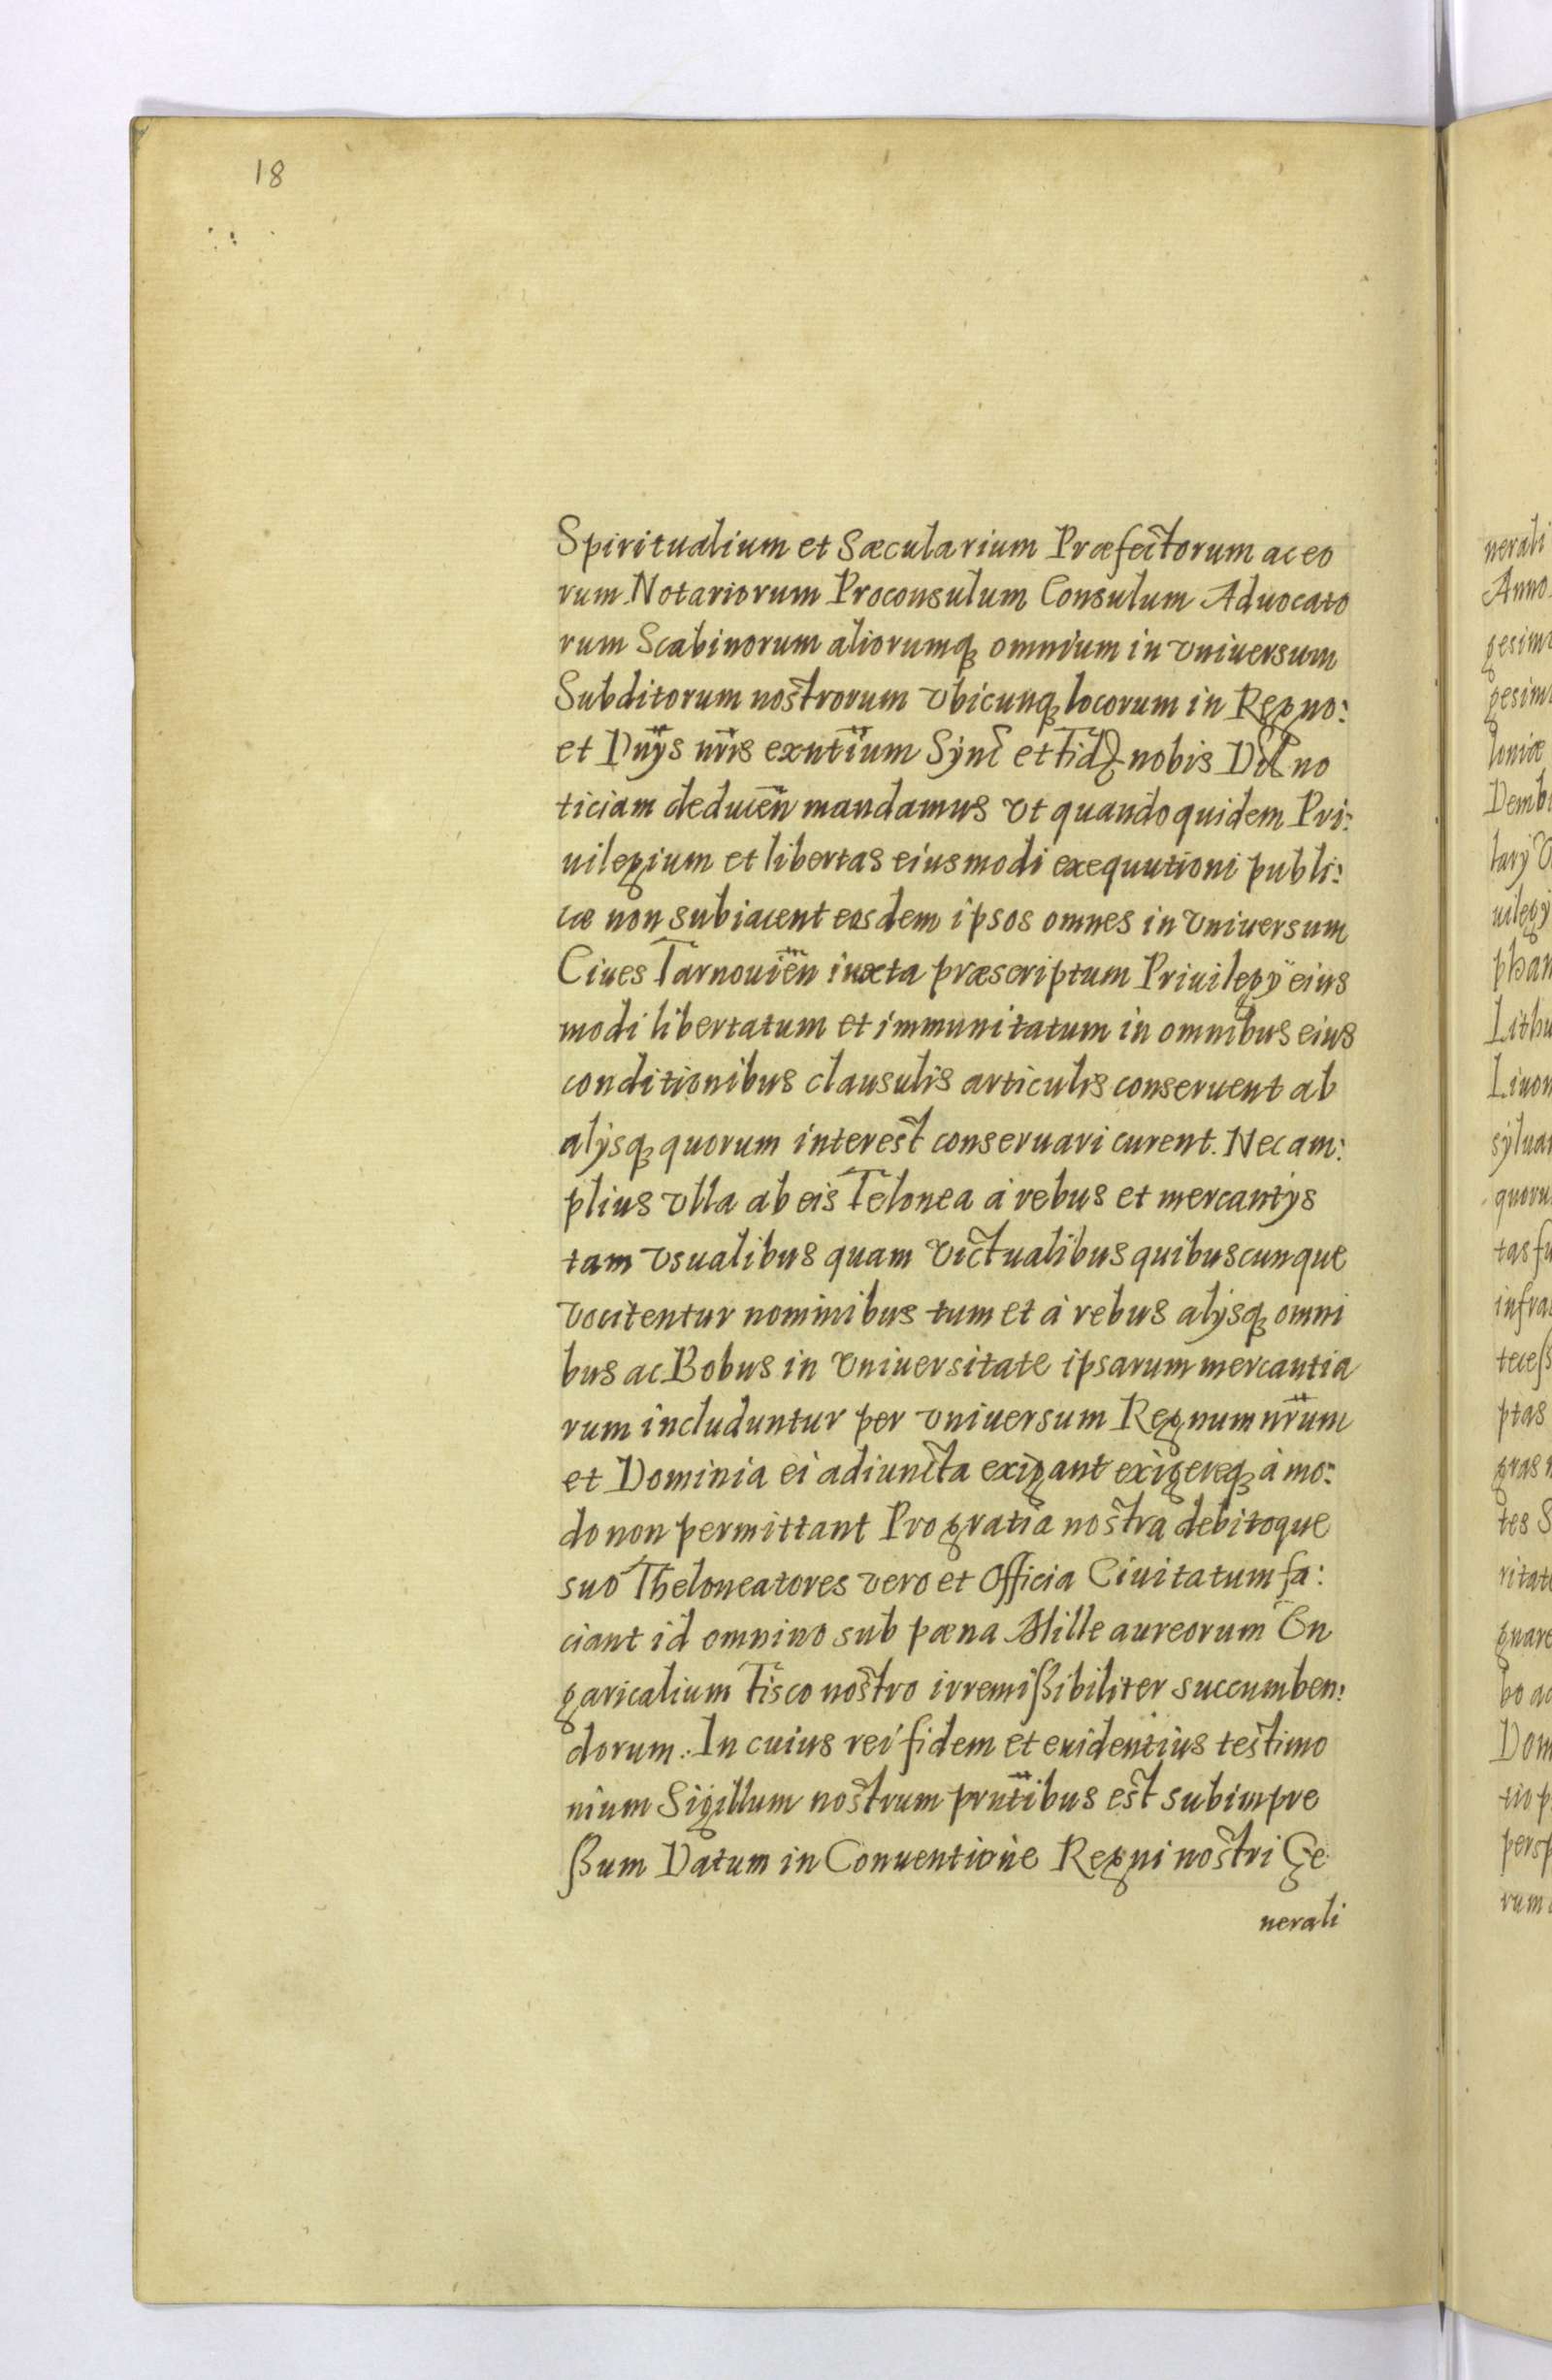 18
Spiritualium et Sæcularium Præfectorum ac eo
rum Notariorum Proconsulum Consulum Aduocato
rum Scabinorum aliorumq₃ omnium in vniuersum
Subditorum nostrorum vbicunq₃ locorum in Regno:
et Dnÿs nr̃is exñtium Sÿnc̃ et Fid nobis Dil no
ticiam deducen̄ mandamus vt quandoquidem Pri:
uilegium et libertas eiusmodi exequutioni publi:
cæ non subiacent eosdem ipsos omnes in vniuersum
Ciues Tarnouien̄ iuxta præscriptum Priuilegÿ eius
modi libertatum et immunitatum in omnibus eius
conditionibus clausulis articulis conseruent ab
alÿsq₃ quorum interest conseruari curent. Nec am:
plius vlla ab eis Telonea à rebus et mercantÿs
tam vsualibus quam victualibus quibuscunque
vocitentur nominibus tum et à rebus alÿsq₃ omni
bus ac Bobus in vniuersitate ipsarum mercantia
rum includuntur per vniuersum Regnum nr̃um
et Dominia ei adiuncta exigant exigereq₃ à mo:
do non permittant Pro gratia nostra debitoque
suo Theloneatores vero et Officia Ciuitatum fa:
ciant id omnino sub pæna Mille aureorum Vn
garicalium Fisco nostro irremißibiliter succumben:
dorum. In cuius rei fidem et euidentius testimo
nium Sigillum nostrum prñtibus est subimpre
ßum Datum in Conuentione Regni nostri Ge
nerali
nerali
Anno
gesim
gesim
loniæ
Demb
larÿ
uilegÿ
phan
Lithu
Liuon
sÿluan
quoru
tas fu
infra
teceß
ptas
gras
tes S
ritat
gnare
bo ac
Dom
tio p
persp
rum